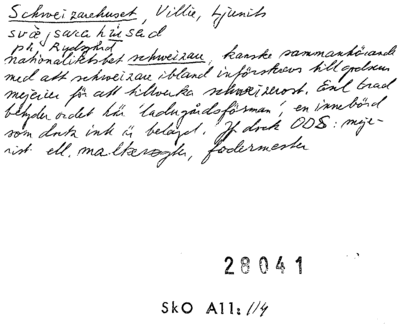 Schweizarehuset, Villie, Ljunits
svæ̀jsarahúsad
på Rydsgård
nationalitetsbet schweizare, kanske sammanhörande
med att schweizare ibland införskrevs till godsens
mejerier för att tillverka schweizerost. Enl trad
betyder ordet här 'ladugårdsförman', en innebörd
som dock ink är belagd. Jf dock ODS: meje-
rist ell. malkerøgter, fodermester
28041
SkO All: 114